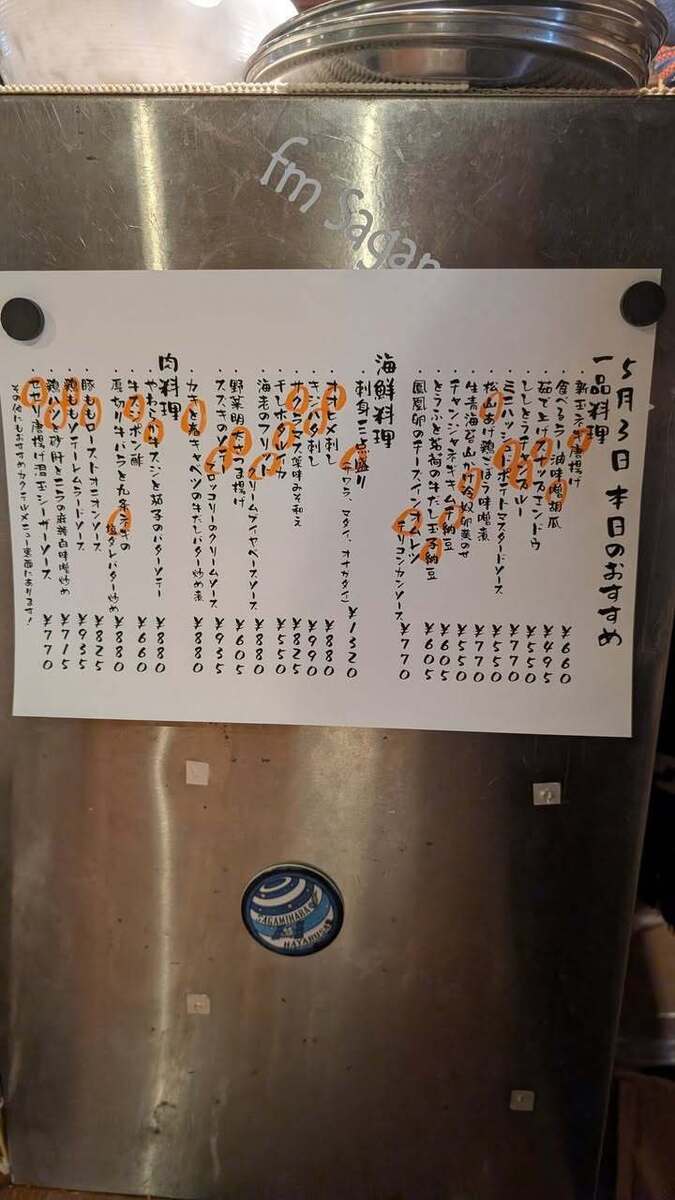 fm Sagam
5月3日 本日のおすすめ
一品料理
・新玉ネギ唐揚げ ¥660
・食べるラー油味噌胡瓜 ¥495
・茹で上げスナップエンドウ ¥550
・ししとうチャンプルー ¥770
・ミニハッシュドポテトマスタードソース ¥550
・松山あげ鶏ごぼう味噌煮 ¥770
・生青海苔山かけ冷奴 ¥550
・チャンジャネギキムチ納豆 ¥605
・とうふと茗荷の牛だし玉子納豆 ¥605
・鳳凰卵のチーズインオムレツ チリコンカンソース ¥770
海鮮料理
・刺身三点盛り(サワラ、マダイ、オナガダイ) ¥1320
・オオヒメ刺し ¥880
・キジハタ刺し ¥990
・サクラマス薬味みそ和え ¥825
・干しホタルイカ ¥550
・海老のフリット クリームブイヤベースソース ¥880
・野菜明太さつま揚げ ¥605
・スズキのソテー ブロッコリーのクリームソース ¥935
・カキと春キャベツの牛だしバター炒め煮 ¥880
肉料理
・やわらか牛スジと茄子のバターソテー ¥880
・牛スジポン酢 ¥660
・厚切り牛バラと九条ネギの塩ダレバター炒め ¥880
・豚ももローストオニオンソース ¥825
・鶏ももソテークレームムタードソース ¥935
・鶏ハツと砂肝とニラの麻辣白味噌炒め ¥715
・セセリ唐揚げ君玉シーザーソース ¥770
その他にもおすすめカクテルメニュー裏面にあります!
SAGAMIHARA
HAYABUSA